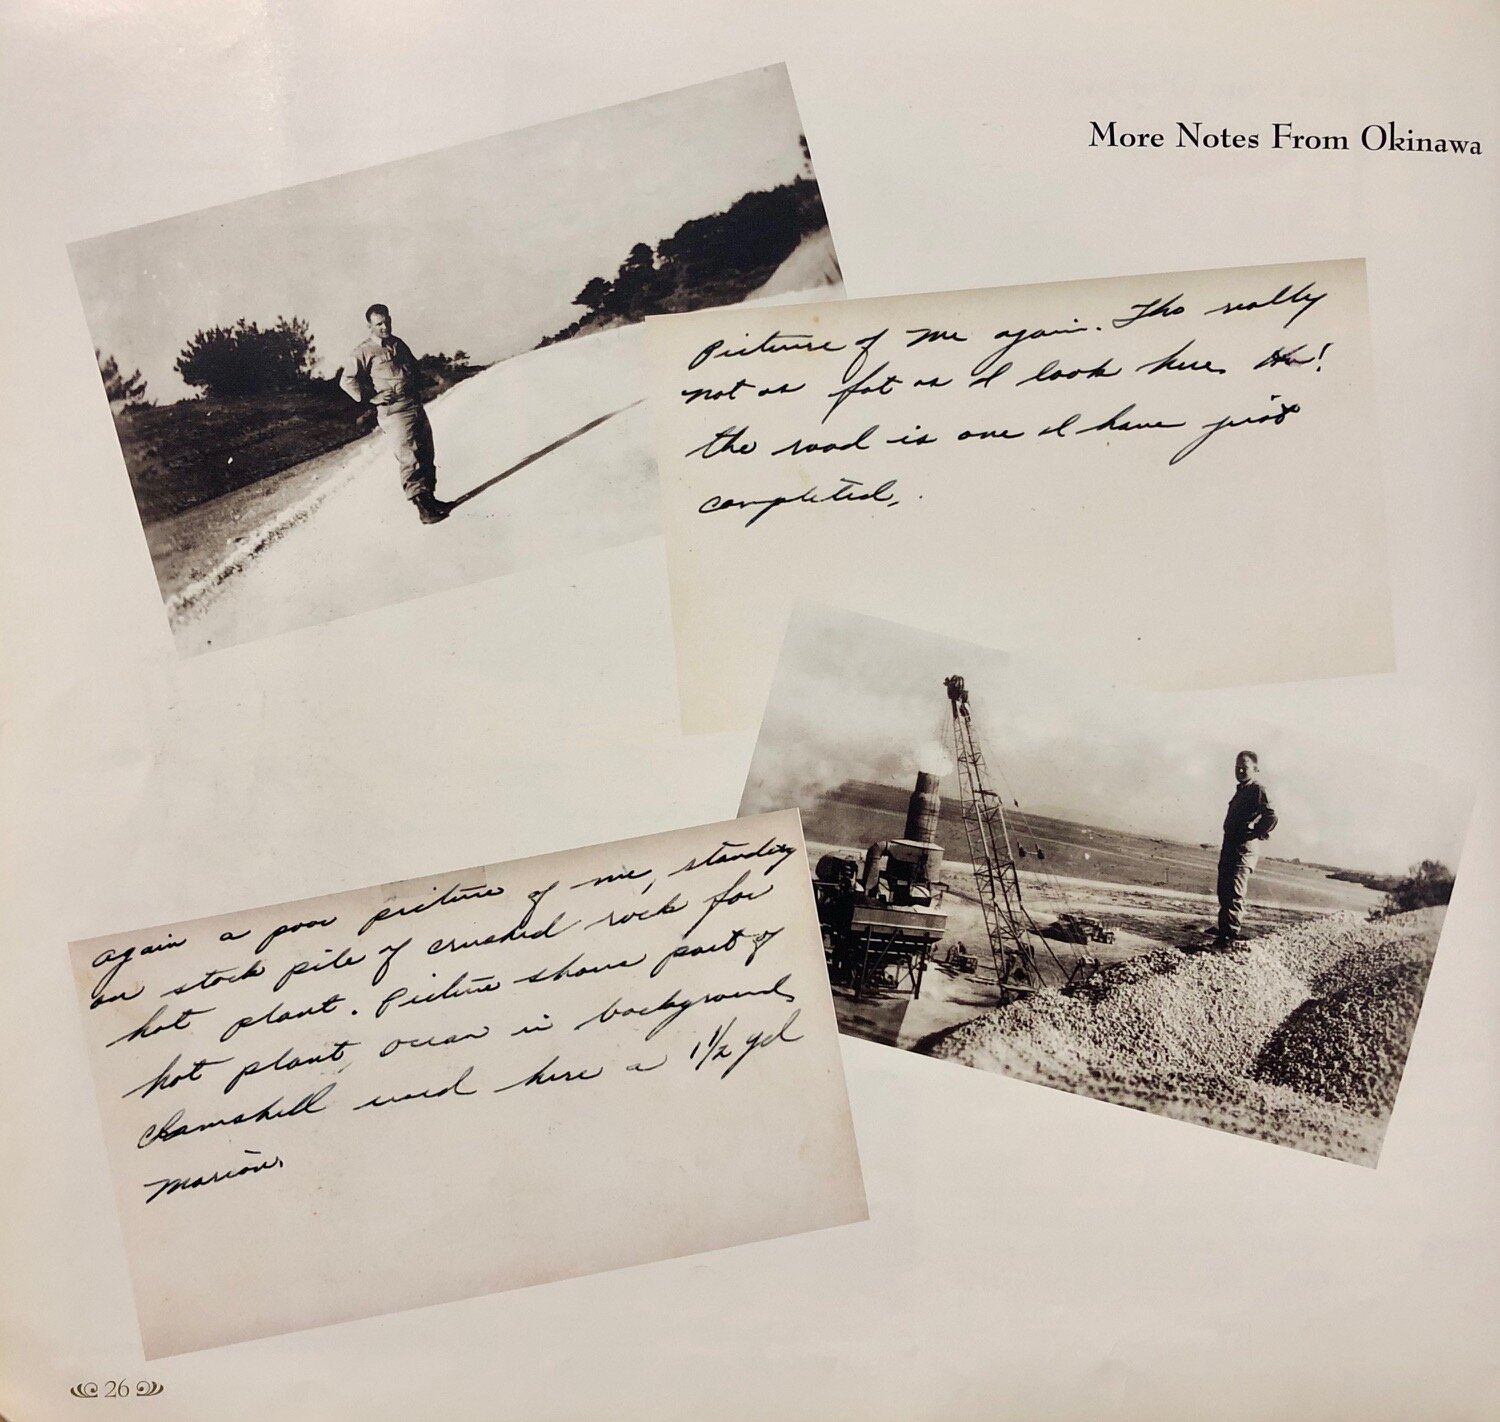 More Notes From Okinawa
Picture of me again. Tho really
not as fat as I look here. Ha!
the road is one I have just
completed.
again a poor picture of me, standing
on stock pile of crushed rock for
hot plant. Picture shows part of
hot plant, ocean in background
Clamshell used here a 1 1/2 yd
Marion.
26